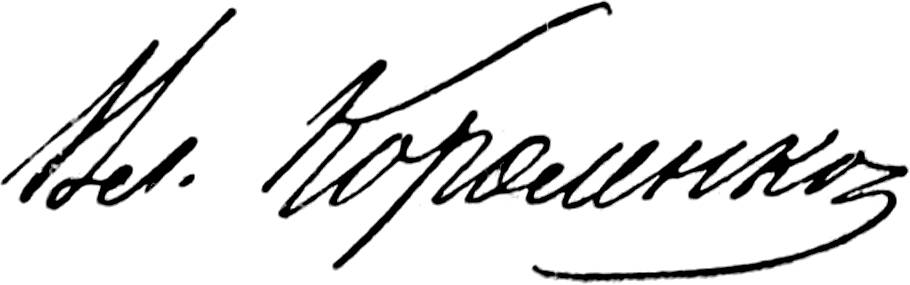 Вл. Короленко